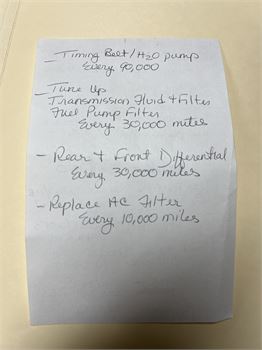 - Timing Belt/H2O pump
Every 90,000
- Tune Up
Transmission Fluid & Filter
Fuel Pump Filter
Every 30,000 miles
- Rear & Front Differential
Every 30,000 miles
- Replace AC Filter
Every 10,000 miles